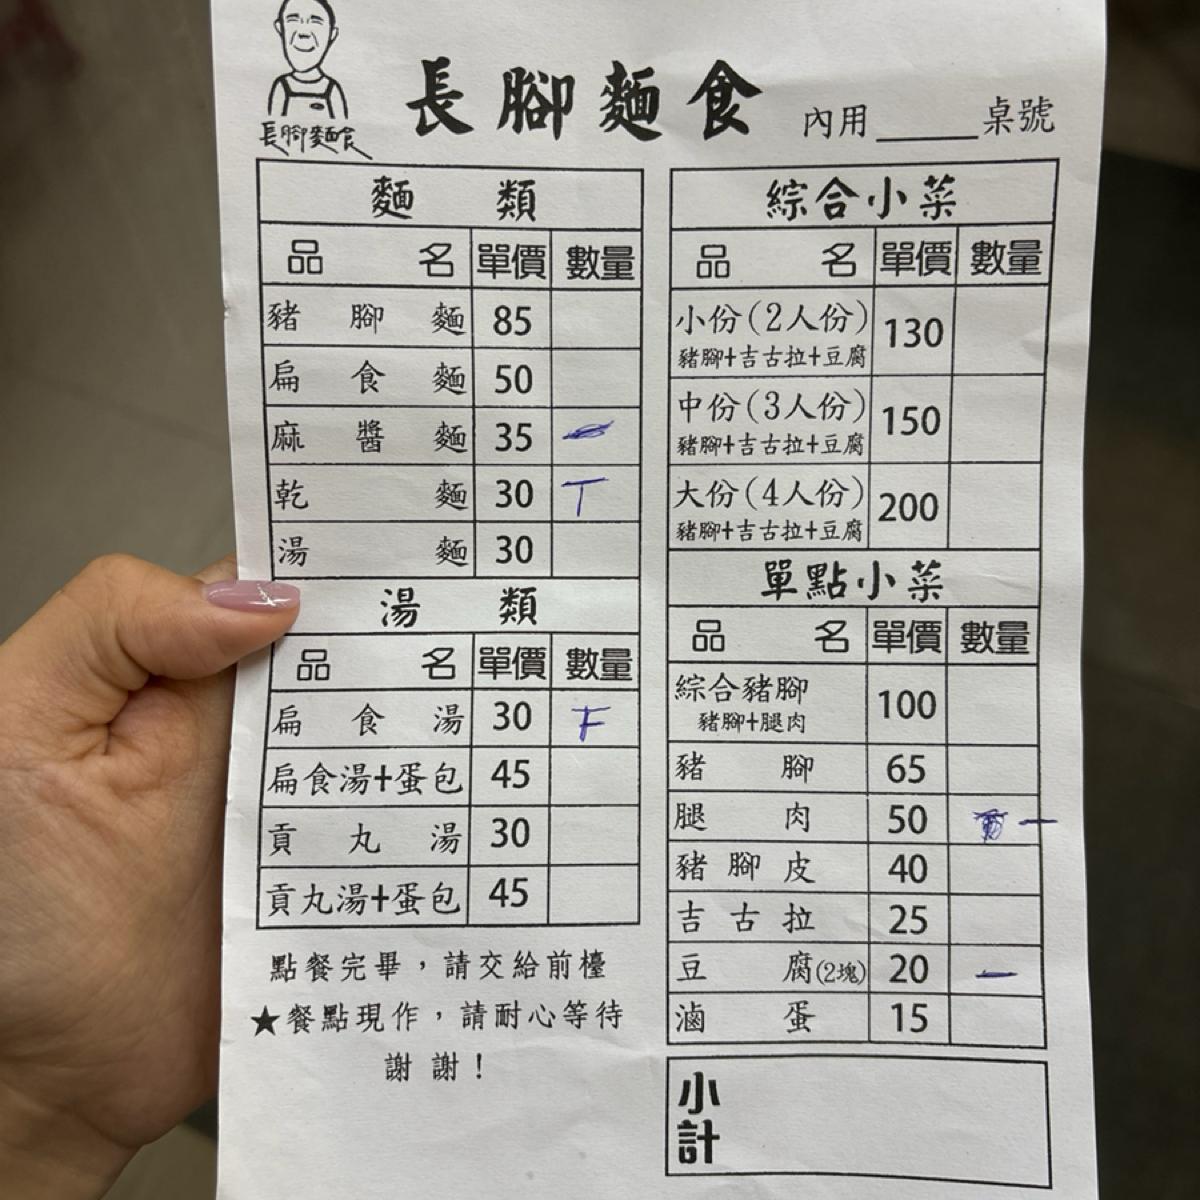 長腳麵食
長腳麵食
內用_____桌號
麵 類
品 名 單價 數量
豬腳麵 85
扁食麵 50
麻醬麵 35
乾麵 30 T
湯麵 30
湯 類
品 名 單價 數量
扁食湯 30 F
扁食湯+蛋包 45
貢丸湯 30
貢丸湯+蛋包 45
點餐完畢,請交給前檯
★餐點現作,請耐心等待
謝謝!
綜合小菜
品 名 單價 數量
小份(2人份) 130
豬腳+吉古拉+豆腐
中份(3人份) 150
豬腳+吉古拉+豆腐
大份(4人份) 200
豬腳+吉古拉+豆腐
單點小菜
品 名 單價 數量
綜合豬腳 100
豬腳+腿肉
豬腳 65
腿肉 50 一
豬腳皮 40
吉古拉 25
豆腐(2塊) 20 一
滷蛋 15
小計